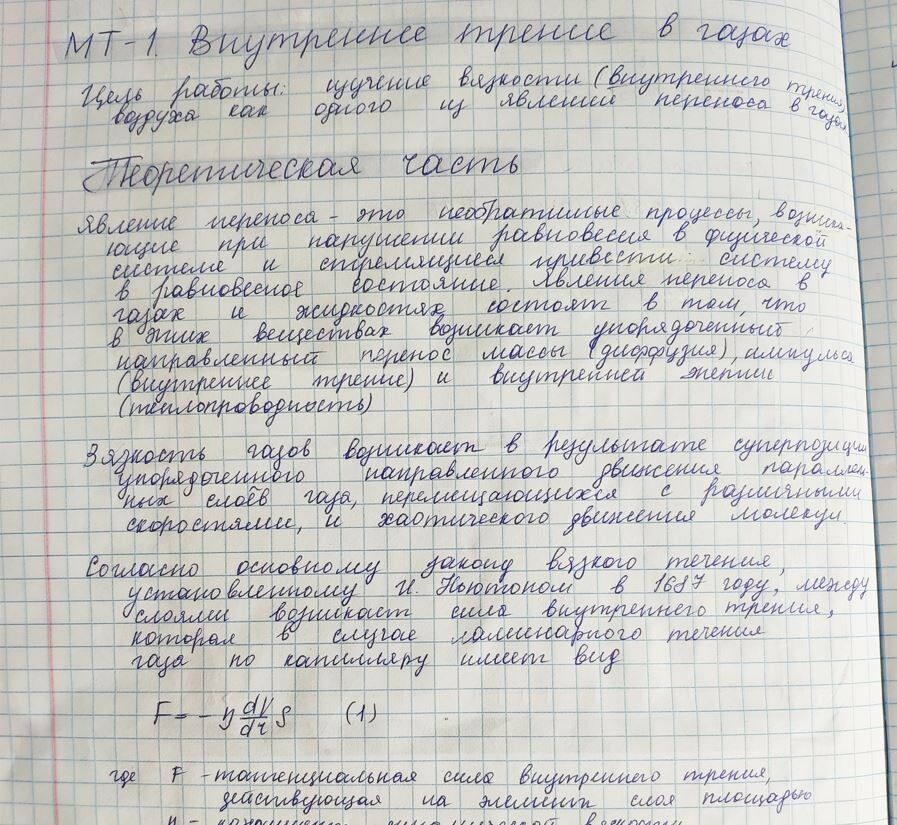 МТ-1. Внутреннее трение в газах
Цель работы: изучение вязкости (внутреннего трения)
воздуха как одного из явлений переноса в газах
Теоретическая часть
Явление переноса - это необратимые процессы, возника-
ющие при нарушении равновесия в физической
системе и стремящиеся привести систему
в равновесное состояние. Явления переноса в
газах и жидкостях состоят в том, что
в этих веществах возникает упорядоченный
направленный перенос массы (диффузия), импульса
(внутреннее трение) и внутренней энергии
(теплопроводность)
Вязкость газов возникает в результате суперпозиции
упорядоченного направленного движения параллель-
ных слоёв газа, перемещающихся с различными
скоростями, и хаотического движения молекул
Согласно основному закону вязкого течения,
установленному И. Ньютоном в 1687 году, между
слоями возникает сила внутреннего трения,
которая в случае ламинарного течения
газа по капилляру имеет вид
F = - η dV/dr S (1)
где F - тангенциальная сила внутреннего трения,
действующая на элемент слоя площадью